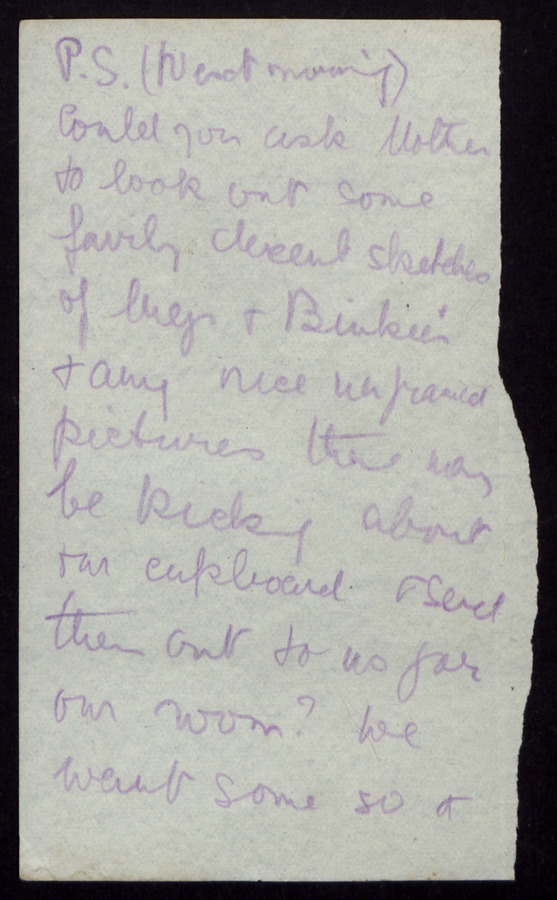 P.S. (Next morning)
Could you ask Mother
to look out some
fairly decent sketches
of & Binkie's
+ any nice unframed
pictures there may
be kicking about
our cupboard & send
them out to us for
our room? We
want some so